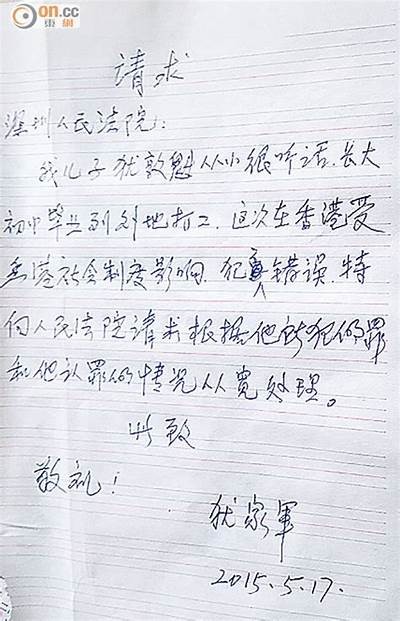 on.cc
東網
请求
深圳人民法院:
我儿子犹敦魁从小很听话.长大
初中毕业到外地打工.这次在香港受
香港社会制度影响.犯 错误.特
向人民法院请求根据他所犯的罪
和他认罪的情况从宽处理。
此致
敬礼!
犹家军
2015.5.17.